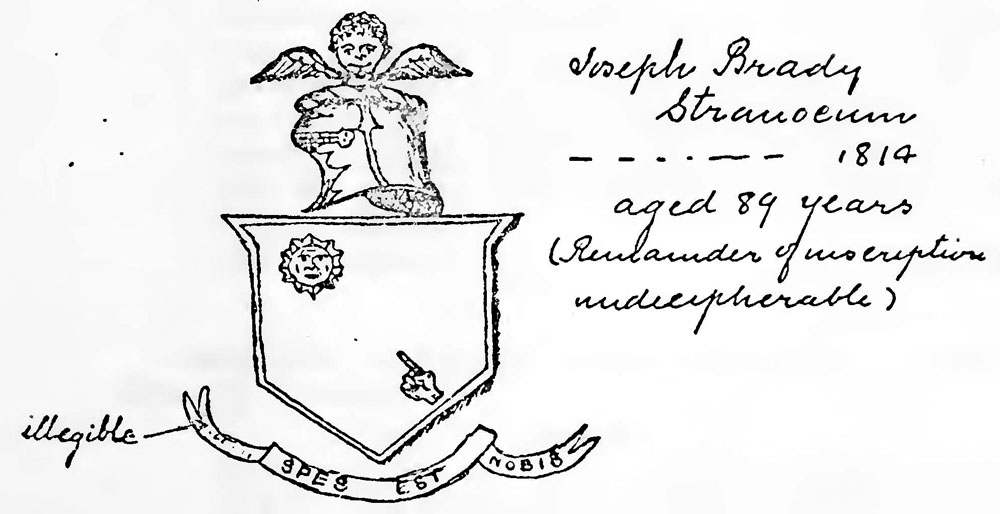 Joseph Brady
Stranocum
— — — . . — — 1814
aged 89 years
(Remainder of inscription
undecipherable)
illegible
SPES EST NOBIS